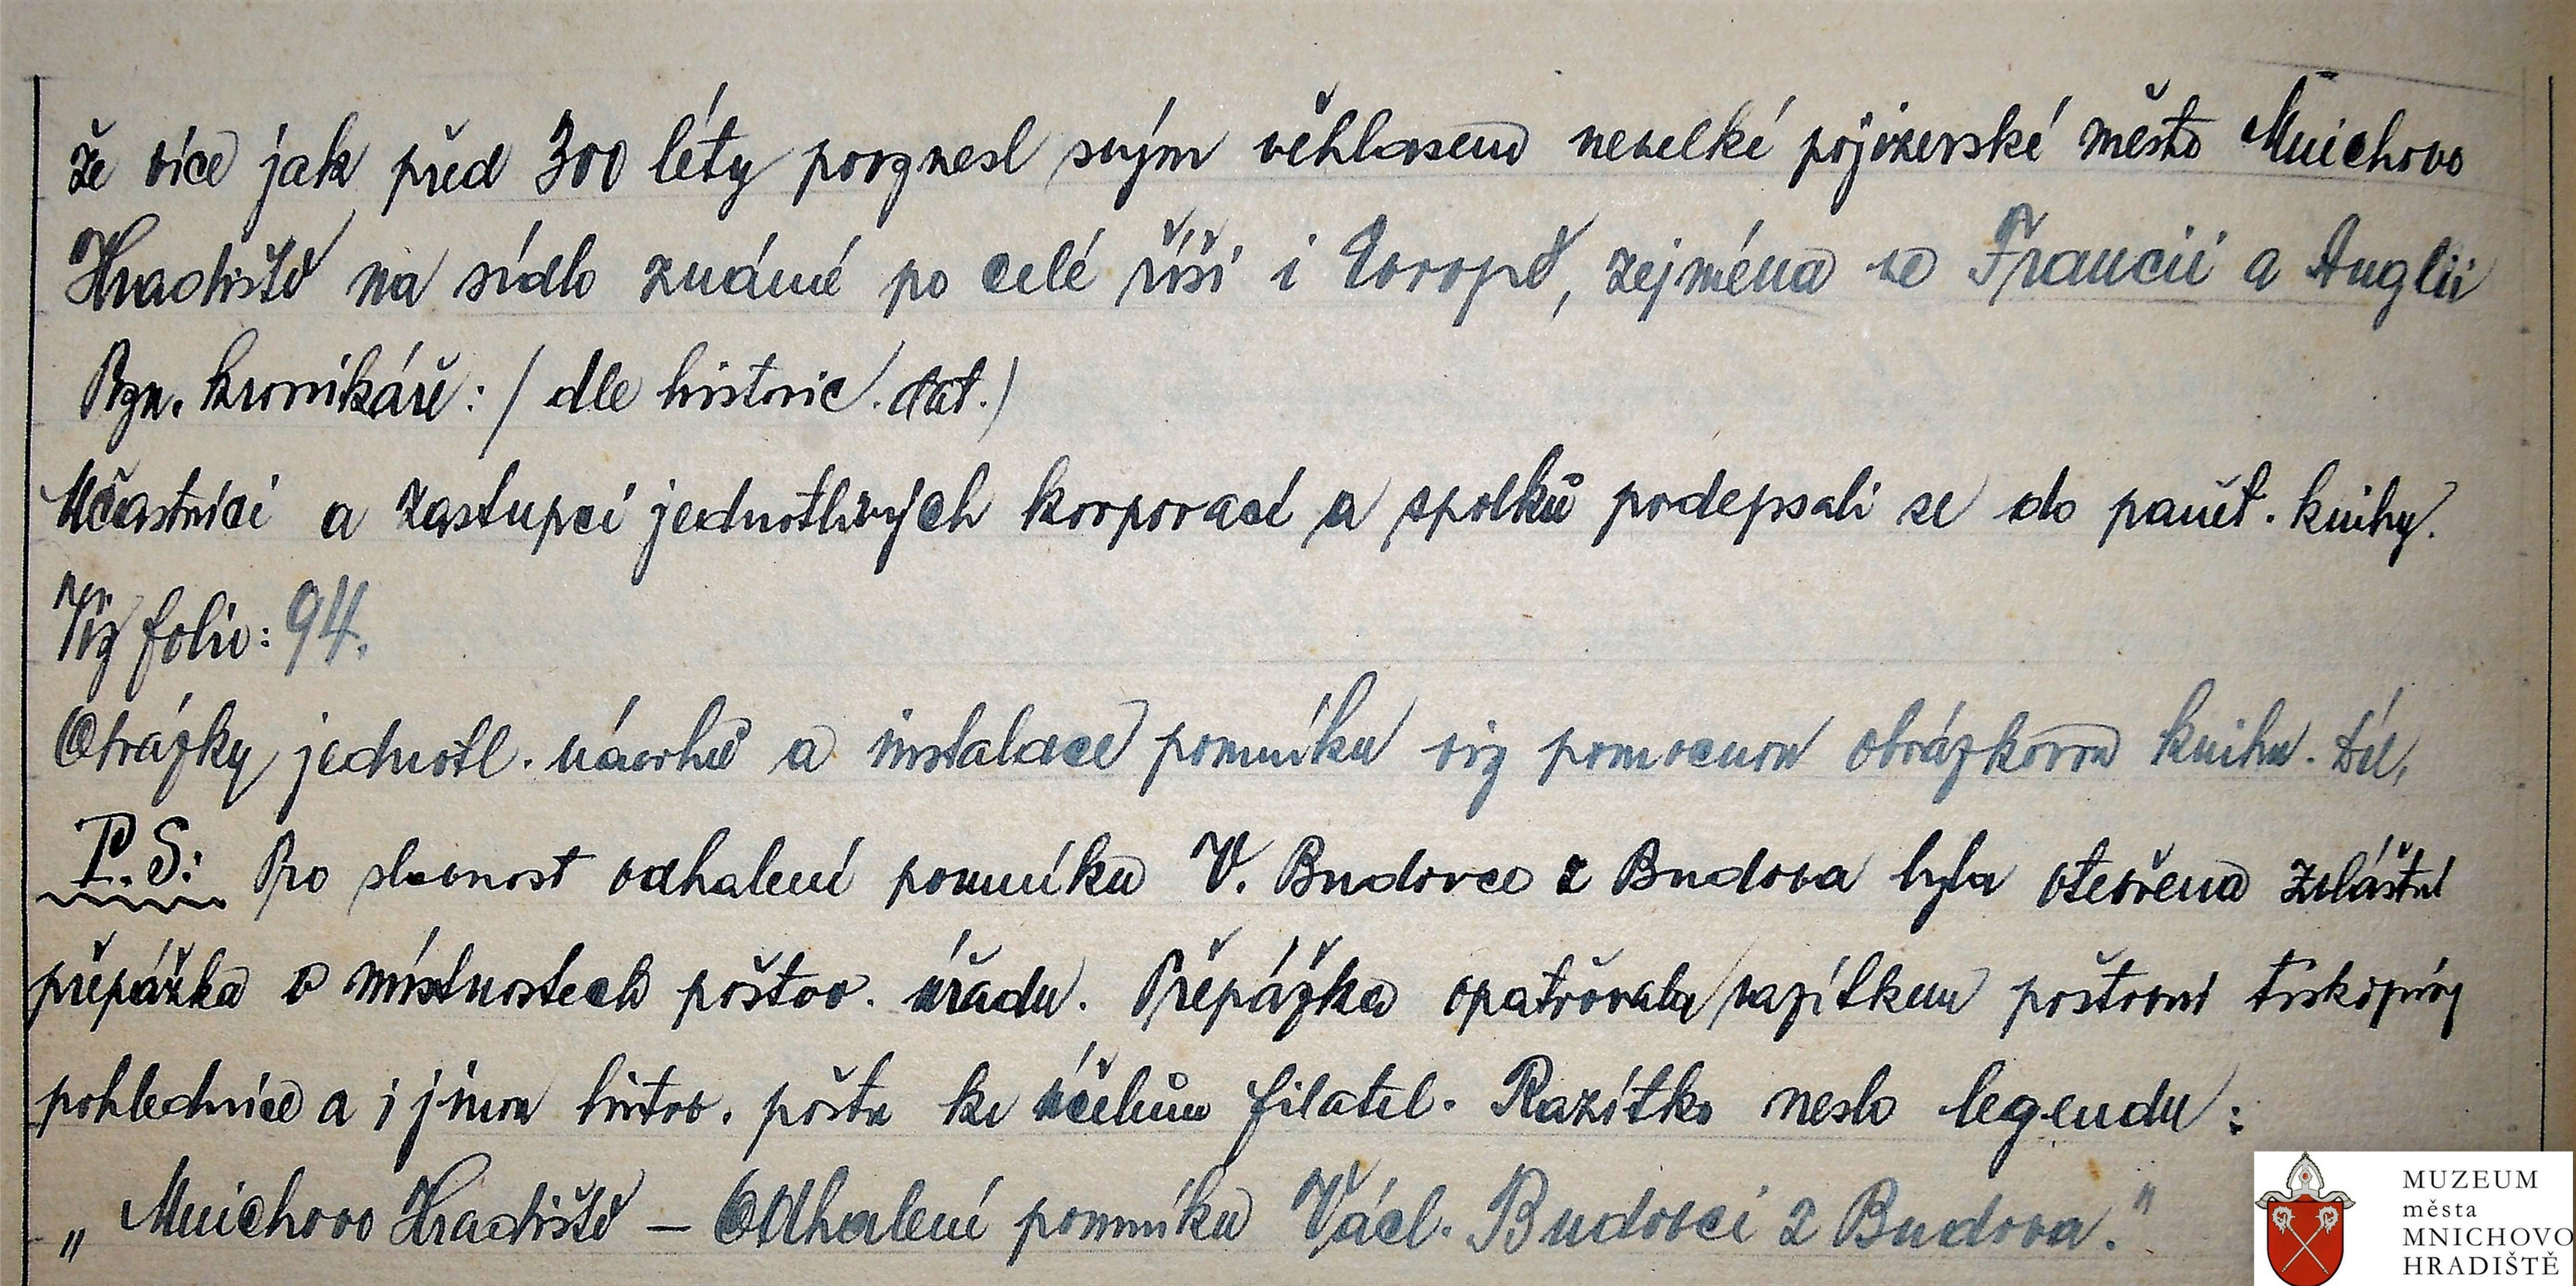 že více jak před 300 léty povznesl svým věhlasem nevelké pojizerské město Mnichovo
Hradiště na sídlo známé po celé říši i Evropě, zejména ve Francii a Anglii
Pozn. kronikáře: / dle historic. dat. /
Účastníci a zástupci jednotlivých korporací a spolků podepsali se do pamět. knihy.
Viz folio: 94.
Obrázky jednotl. návrhů a instalace pomníku viz pomocnou obrázkovou knihu.
P.S: Pro slavnost odhalení pomníku V. Budovce z Budova byla otevřena zvláštní
přepážka v místnostech poštov. úřadu. Přepážka opatřovala razítkem poštovní tiskopisy
pohlednice a i jinou listov. poštu ku účelům filatel. Razítko neslo legendu:
„Mnichovo Hradiště – Odhalení pomníku Václ. Budovci z Budova."
MUZEUM
města
MNICHOVO
HRADIŠTĚ